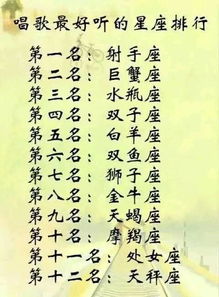 唱歌最好听的星座排行
第一名：射手座
第二名：巨蟹座
第三名：水瓶座
第四名：双子座
第五名：白羊座
第六名：双鱼座
第七名：狮子座
第八名：金牛座
第九名：天蝎座
第十名：摩羯座
第十一名：处女座
第十二名：天秤座